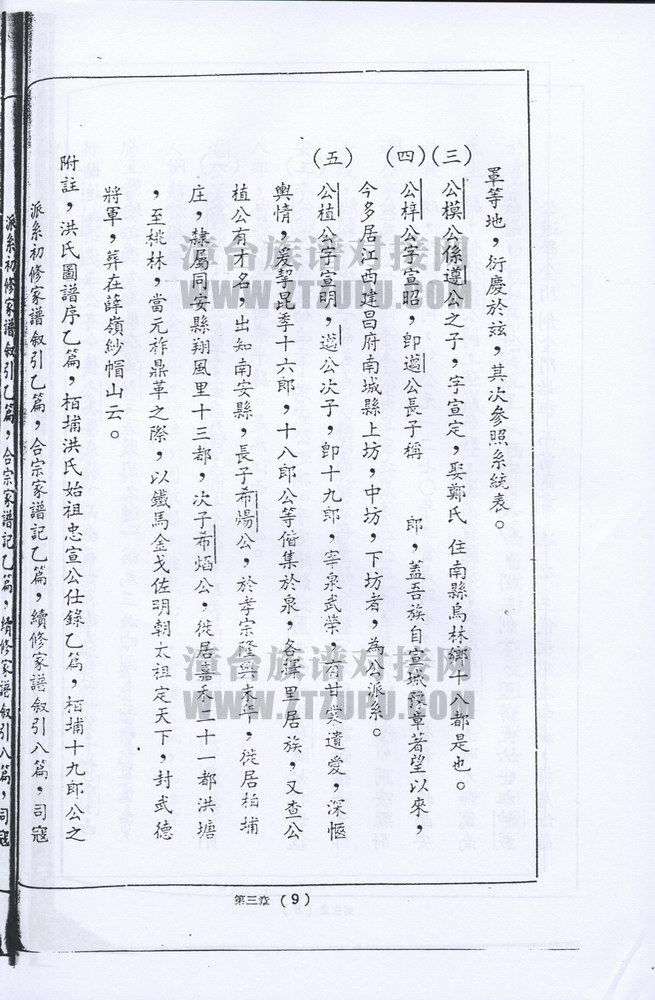 罩等地，衍慶於玆，其次參照系統表。
(三)公模公係遵公之子，字宣定，娶鄭氏 住南縣烏林鄉十八都是也。
(四)公梓公字宣昭，即邁公長子稱 郎，蓋吾族自宣城豫章著望以來，
今多居江西建昌府南城縣上坊，中坊，下坊者，為公派系。
(五)公植公字宣明，邁公次子，即十九郎，宰泉武榮，有甘棠遺愛，深愜
輿情，爰挈昆季十六郎，十八郎公等偕集於泉，各擇里居族，又查公
植公有才名，出知南安縣，長子希煬公。於孝宗隆興末年，徙居柏埔
庄，隸屬同安縣翔風里十三都，次子希焰公，徙居嘉禾二十一都洪塘
，至桃林，當元祚鼎革之際，以鐵馬金戈佐明朝太祖定天下，封武德
將軍，葬在薛嶺紗帽山云。
附註，洪氏圖譜序乙篇，栢埔洪氏始祖忠宣公仕錄乙篇，栢埔十九郎公之
派系初修家譜叙引乙篇，合宗家譜記乙篇，續修家譜叙引八篇，司寇
派系初修家譜叙引乙篇，合宗家譜記乙篇，續修家譜叙引八篇，司寇
第三章 (9)
漳台族谱对接网
WWW.ZTZUPU.COM
漳台族谱对接网
WWW.ZTZUPU.COM